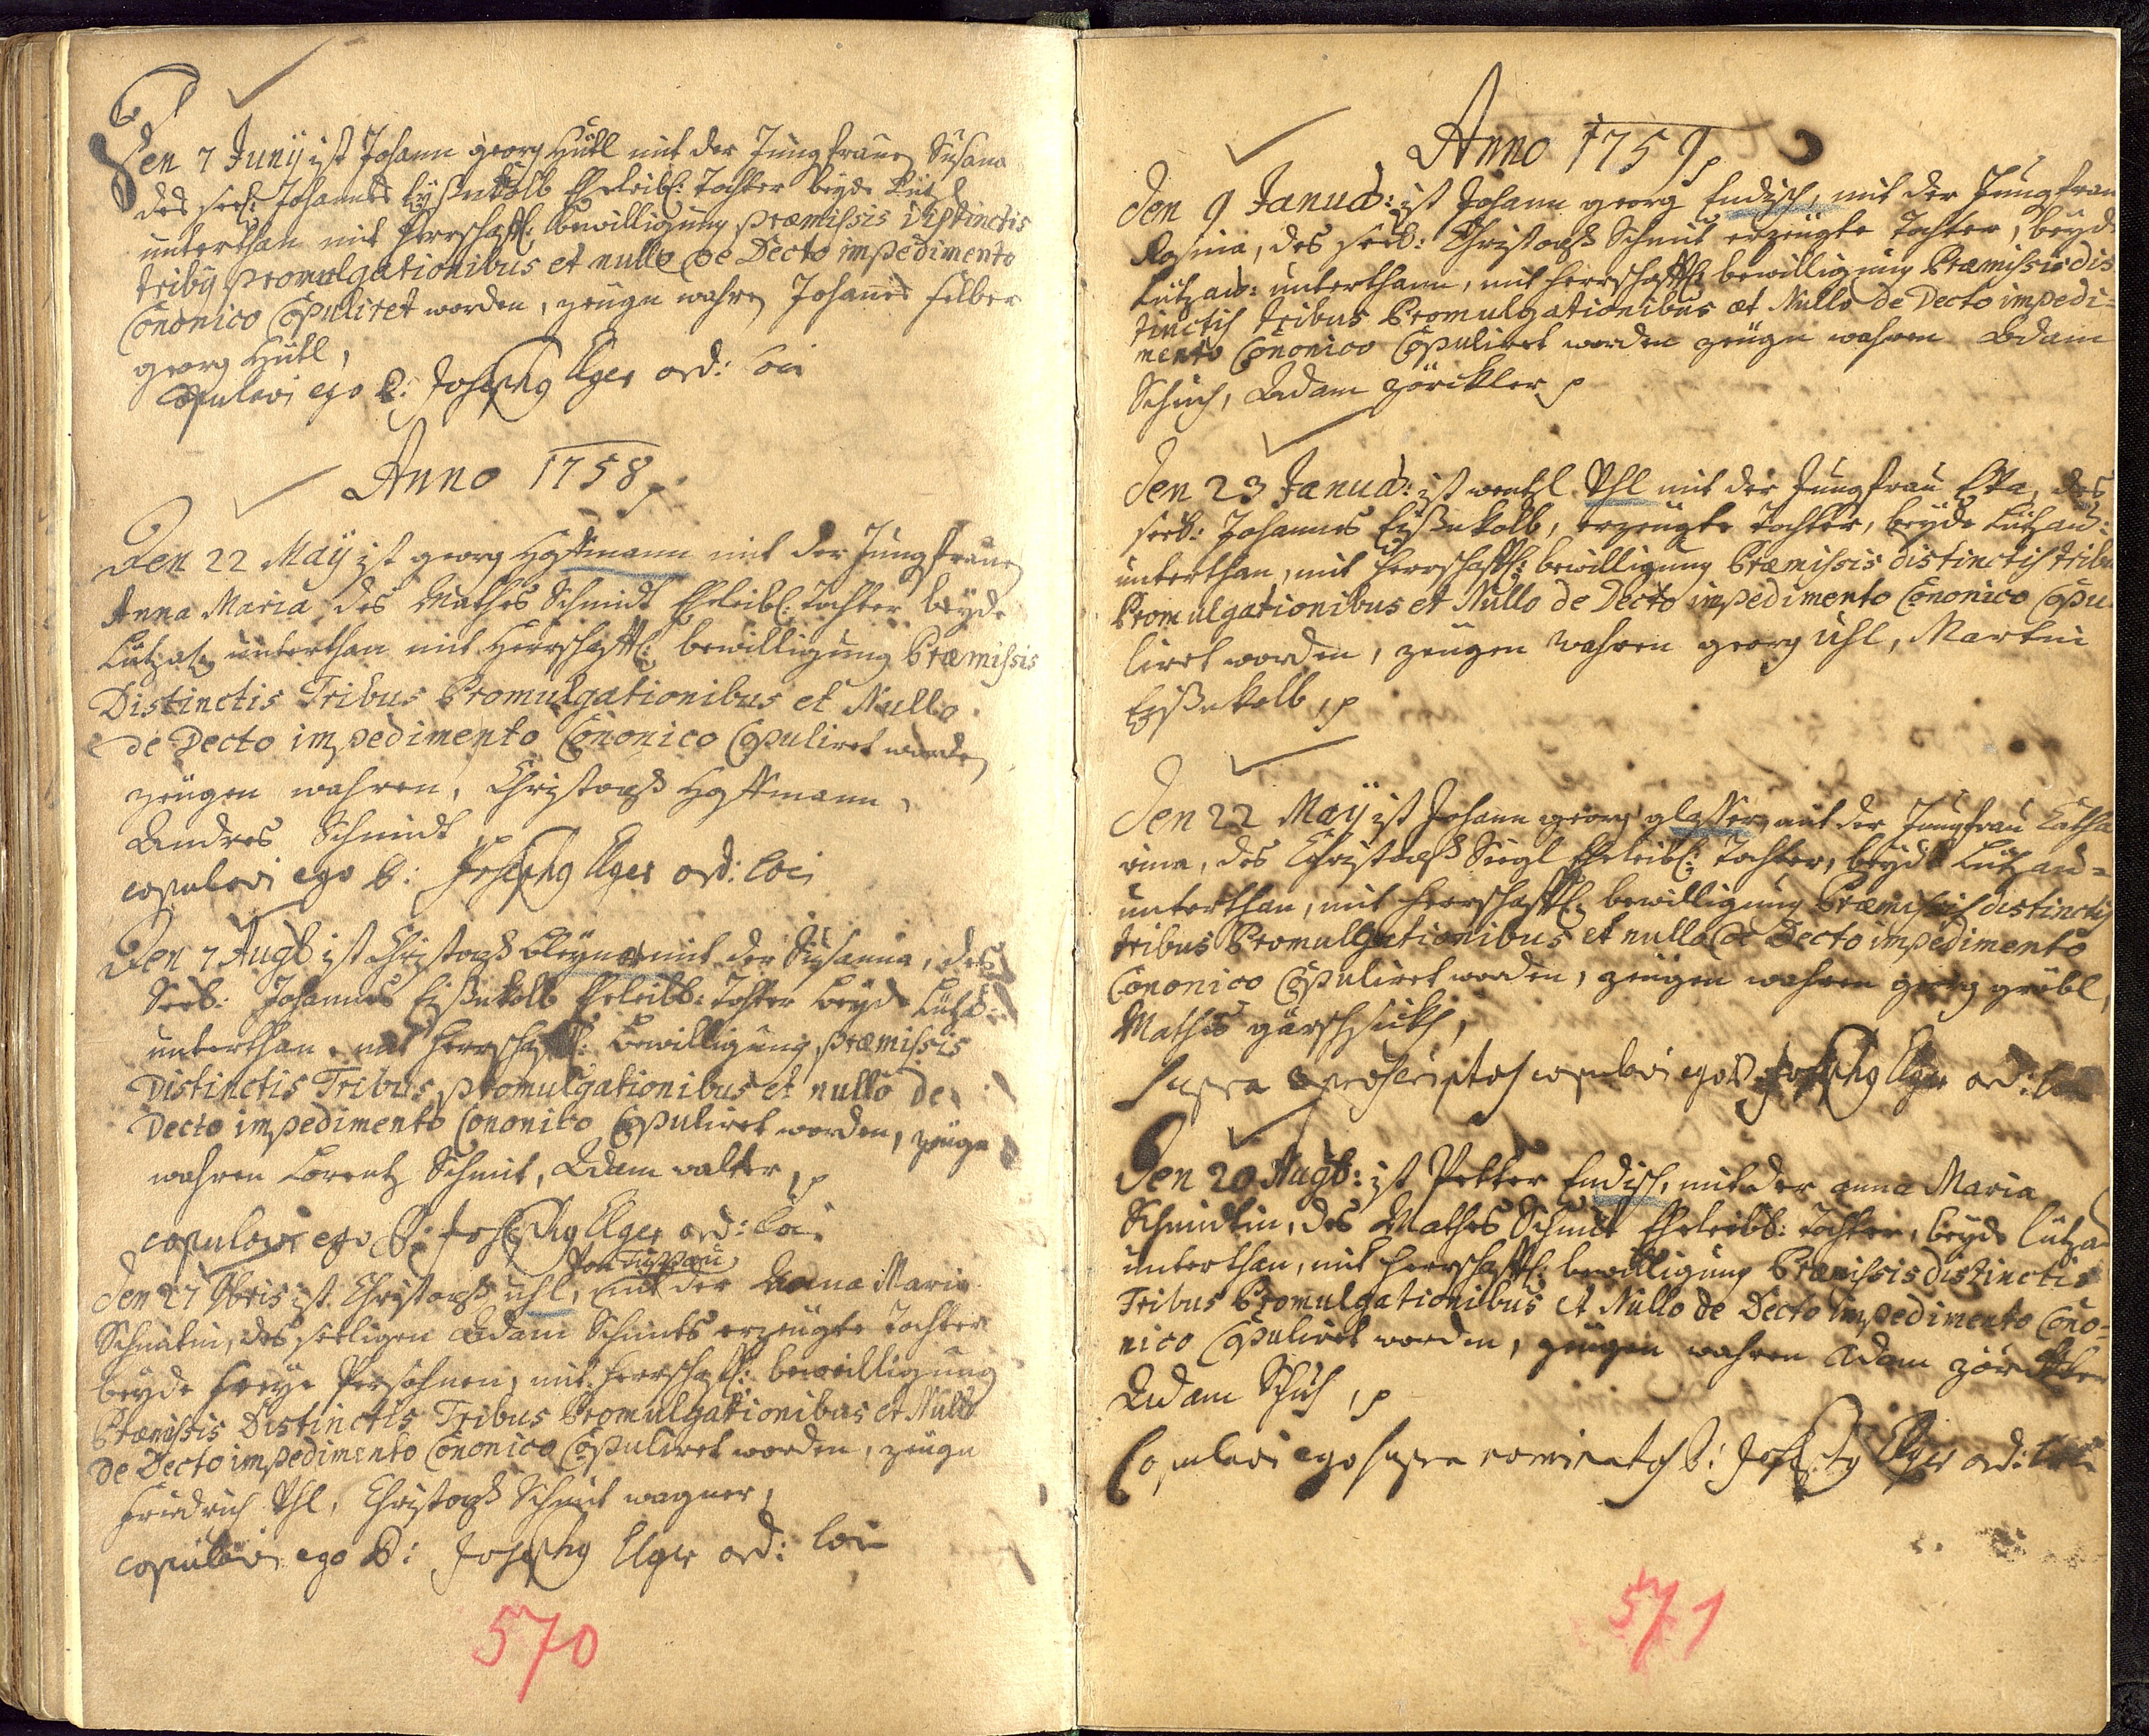 Den 7 Junÿ ist Johann georg Hütl mit der Jungfrauen Susana
des seel: Johannes Eÿßnkolb Eheleibl: Tochter beyde Lutz:
unterthan mit Herrschafftl: bewilligung præmissis Distinctis
tribq promulgationibus et nullo de Decto impedimento
Cononico Copuliret worden, zeugn wahren Johannes
georg Hütl,
Copulavi ego P: Josephq Elger ord: loci
Anno 1758
Den 22 Maÿ ist georg Hoffmann mit der Jungfrauen
Anna Maria, des Mathes Schmidt Eheleibl: Tochter beyde
unterthan mit Herrschafftl: bewilligung Præmissis
Distinctis Tribus Promulgationibus et Nullo
de Decto impedimento Cononico Copuliret worden
zeügen wahren, Christoph Hoffmann,
Andres Schmidt
copulavi ego P: Josephq Elger ord: loci
Den 7 Augst ist Christoph mit der Susanna, des
Seel: Johannes Eißnkolb Eheleibl: Tochter beyde Lutz:
unterthan, mit Herrschafftl: Bewilligung præmissis
Distinctis Tribus promulgationibus et nullo de
Decto impedimento Cononico Copuliret worden, zeügn
wahren Lorentz Schmit, Adam walter
copulavi ego P: Josephq Elger ord: loci
von Tuppau
den 27 9bris ist Christoph uhl, mit der Anna Maria
Schmitin, des seeligen Adam Schmits erzeügte Tochter
beyde freÿe Persohnen, mit herrschafftl: bewilligung
Præmissis Distinctis Tribus Promulgationibus et Nullo
de Decto impedimento Cononico Copuliret worden, zeugn
Friedrich Uhl, Christoph Schmit wagner,
copulavi ego P: Josephq Elger ord: loci
570
Anno 1759
den 9 Januar: ist Johann georg Endisch, mit der Jungfrau
Rosina, des seel: Christoph Schmit erzeügte Tochter, beyde
Lutzau: unterthann, mit herrschafftl: bewilligung Præmissis dis
tinctis tribus Promulgationibus et Nullo de Decto impedi=
mento Cononico Copuliret worden zeügn wahren Adam
Schuch, Adam Zörckler
den 23 Januar: ist wentzl Uhl mit der Jungfrau Eva, des
seel: Johannes Eißnkolb, erzeügte Tochter, beÿde Lutzau:
unterthan, mit herrschafftl: bewilligung Præmissis distinctis tribu
Promulgationibus et Nullo de Decto impedimento Cononico Copu
liret worden, zeugen wahren georg Uhl, Martin
Eÿßnkolb
den 22 Maÿ ist Johann georg glasser, mit der Jungfrau Catha
rina, des Christoph Siegl Eheleibl: Tochter, beyde Lutzau=
unterthan, mit herrschafftl: bewilligung Præmissis distinctis
tribus Promulgationibus et nullo de Decto impedimento
Cononico Copuliret worden, zeügen wahren georg gröbl,
Mathes
supra copulavi ego P: Josephq Elger ord: loci
Den 20 Augst: ist Petter Endisch, mit der anna Maria
Schmidtin, des Mathes Schmit Eheleibl: Tochter, beyde Lutzau
unterthan, mit herrschafftl: bewilligung Præmissis distinctis
Tribus Promulgationibus et Nullo de Decto impedimento Cono=
nico Copuliret worden, zeügen wahren Adam Zörckler
Adam Schuch
Copulavi ego supra P: Josephq Elger ord: loci
571